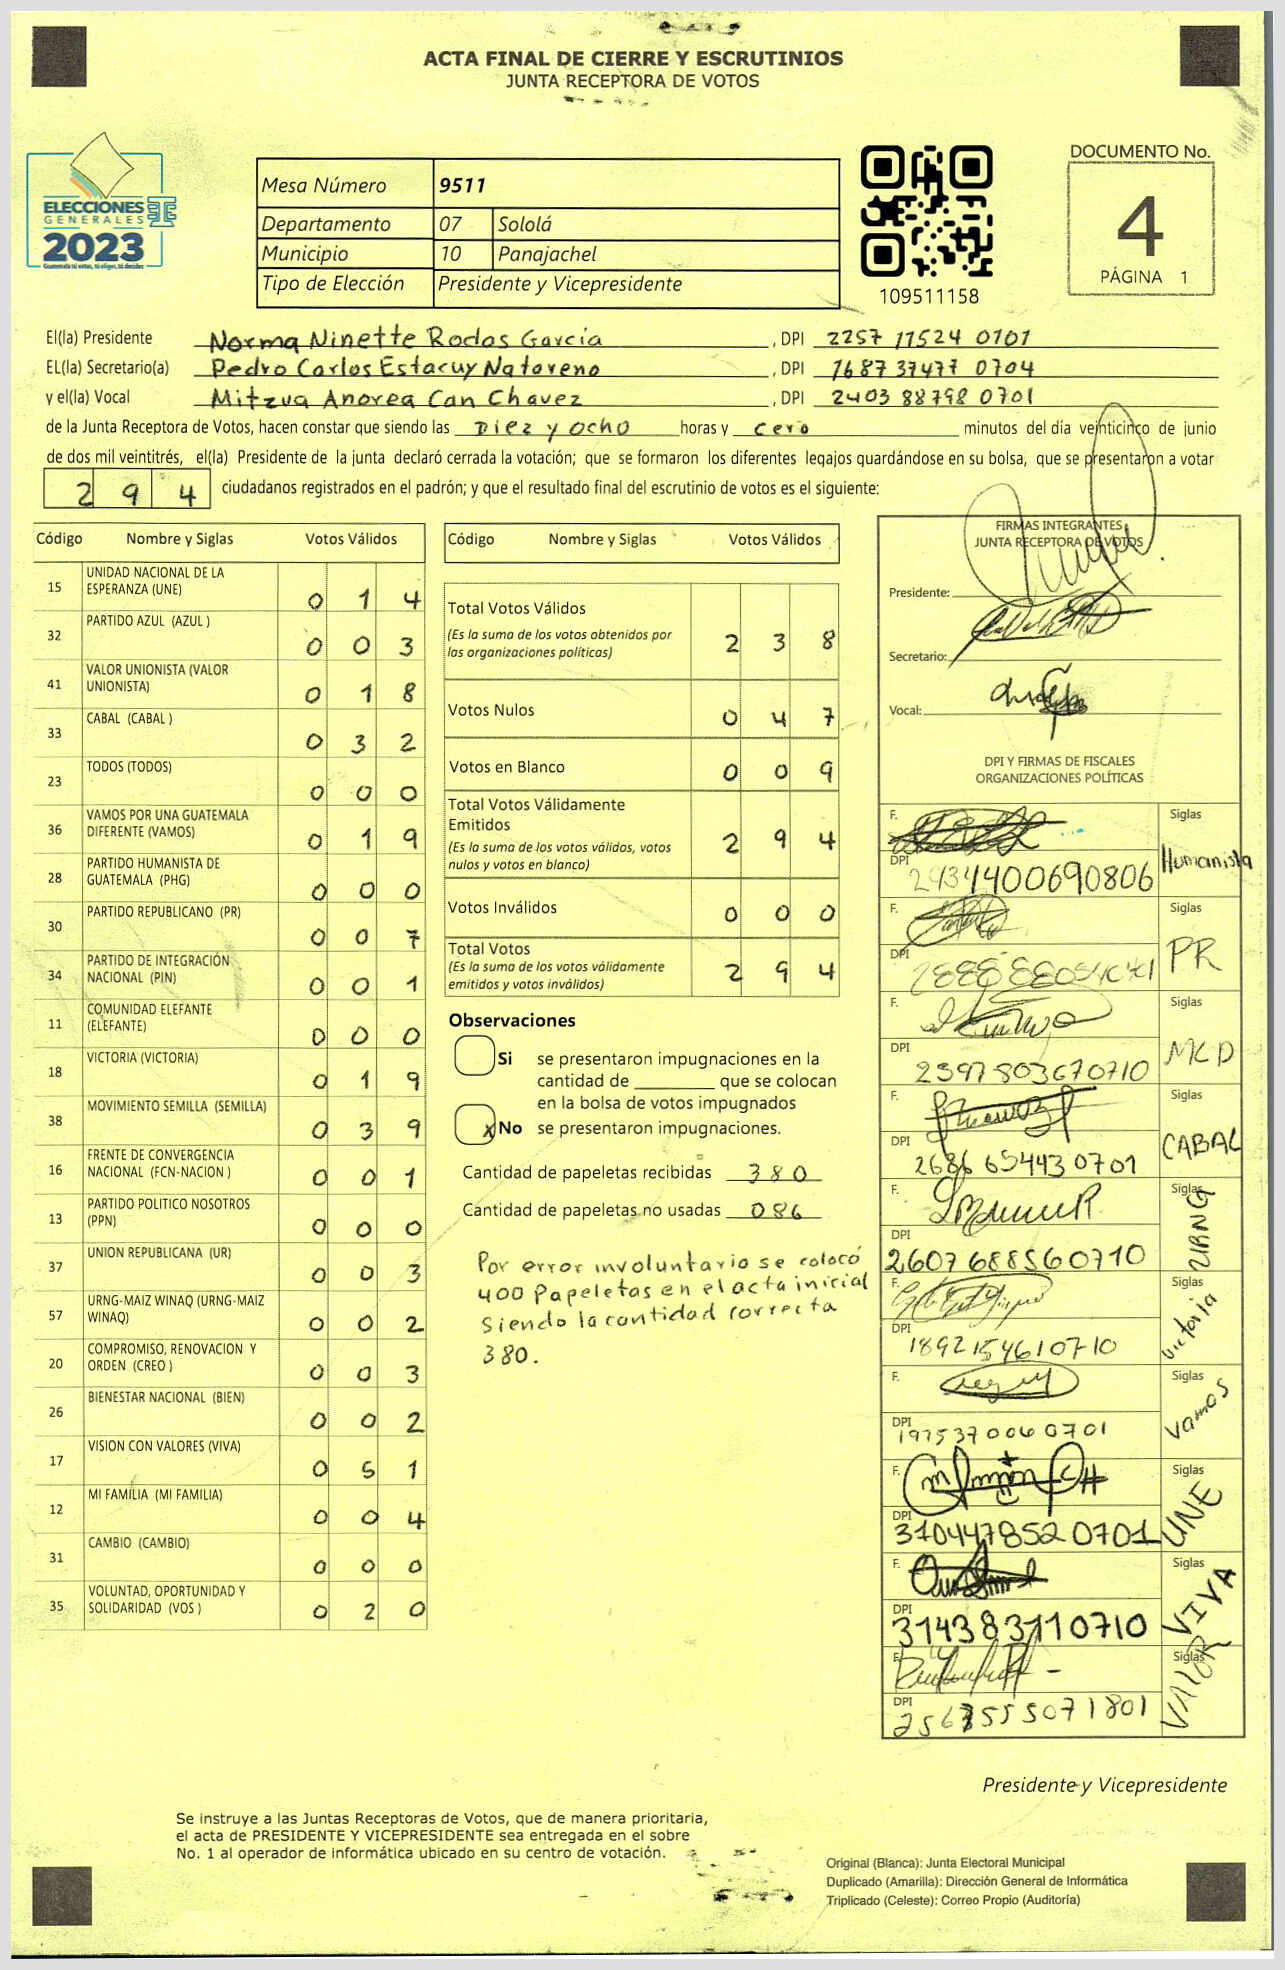 ACTA FINAL DE CIERRE Y ESCRUTINIOS
JUNTA RECEPTORA DE VOTOS
ELECCIONES
GENERALES
2023
Guatemala tú votas, tú eliges, tú decides
Mesa Número 9511
Departamento 07 Sololá
Municipio 10 Panajachel
Tipo de Elección Presidente y Vicepresidente
109511158
DOCUMENTO No.
4
PÁGINA 1
El(la) Presidente Norma Ninette Rodas García, DPI 2257 11524 0101
EL(la) Secretario(a) Pedro Carlos Estacuy Natareno, DPI 1687 37477 0704
y el(la) Vocal Mitzua Anorea Can Chavez, DPI 2403 88798 0701
de la Junta Receptora de Votos, hacen constar que siendo las Diez y ocho horas y cero minutos del día veinticinco de junio
de dos mil veintitrés, el(la) Presidente de la junta declaró cerrada la votación; que se formaron los diferentes legajos guardándose en su bolsa, que se presentaron a votar
294 ciudadanos registrados en el padrón; y que el resultado final del escrutinio de votos es el siguiente:
Código Nombre y Siglas Votos Válidos
15 UNIDAD NACIONAL DE LA ESPERANZA (UNE) 0 1 4
32 PARTIDO AZUL (AZUL ) 0 0 3
41 VALOR UNIONISTA (VALOR UNIONISTA) 0 1 8
33 CABAL (CABAL ) 0 3 2
23 TODOS (TODOS) 0 0 0
36 VAMOS POR UNA GUATEMALA DIFERENTE (VAMOS) 0 1 9
28 PARTIDO HUMANISTA DE GUATEMALA (PHG) 0 0 0
30 PARTIDO REPUBLICANO (PR) 0 0 7
34 PARTIDO DE INTEGRACIÓN NACIONAL (PIN) 0 0 1
11 COMUNIDAD ELEFANTE (ELEFANTE) 0 0 0
18 VICTORIA (VICTORIA) 0 1 9
38 MOVIMIENTO SEMILLA (SEMILLA) 0 3 9
16 FRENTE DE CONVERGENCIA NACIONAL (FCN-NACION ) 0 0 1
13 PARTIDO POLITICO NOSOTROS (PPN) 0 0 0
37 UNION REPUBLICANA (UR) 0 0 3
57 URNG-MAIZ WINAQ (URNG-MAIZ WINAQ) 0 0 2
20 COMPROMISO, RENOVACION Y ORDEN (CREO ) 0 0 3
26 BIENESTAR NACIONAL (BIEN) 0 0 2
17 VISION CON VALORES (VIVA) 0 5 1
12 MI FAMILIA (MI FAMILIA) 0 0 4
31 CAMBIO (CAMBIO) 0 0 0
35 VOLUNTAD, OPORTUNIDAD Y SOLIDARIDAD (VOS ) 0 2 0
Código Nombre y Siglas Votos Válidos
Total Votos Válidos 2 3 8
(Es la suma de los votos obtenidos por
las organizaciones políticas)
Votos Nulos 0 4 7
Votos en Blanco 0 0 9
Total Votos Válidamente
Emitidos 2 9 4
(Es la suma de los votos válidos, votos
nulos y votos en blanco)
Votos Inválidos 0 0 0
Total Votos 2 9 4
(Es la suma de los votos válidamente
emitidos y votos inválidos)
Observaciones
Si se presentaron impugnaciones en la
cantidad de ________ que se colocan
en la bolsa de votos impugnados
x No se presentaron impugnaciones.
Cantidad de papeletas recibidas 380
Cantidad de papeletas no usadas 086
Por error involuntario se colocó
400 Papeletas en el acta inicial
Siendo la cantidad correcta
380.
FIRMAS INTEGRANTES
JUNTA RECEPTORA DE VOTOS
Presidente:
Secretario:
Vocal:
DPI Y FIRMAS DE FISCALES
ORGANIZACIONES POLÍTICAS
F. Siglas
DPI Humanista
F. Siglas
DPI PR
F. Siglas
DPI 2397803670710 MLD
F. Siglas
DPI 2686 65443 0701 CABAL
F. Siglas
DPI 2607 68856 0710 URNG
F. Siglas
DPI 1892154610710 Victoria
F. Siglas
DPI 1975370060701 Vamos
F. Siglas
DPI 310447852 0701 UNE
F. Siglas
DPI 314383110710 VIVA
F. Siglas
DPI VALOR
Presidente y Vicepresidente
Se instruye a las Juntas Receptoras de Votos, que de manera prioritaria,
el acta de PRESIDENTE Y VICEPRESIDENTE sea entregada en el sobre
No. 1 al operador de informática ubicado en su centro de votación.
Original (Blanca): Junta Electoral Municipal
Duplicado (Amarilla): Dirección General de Informática
Triplicado (Celeste): Correo Propio (Auditoría)